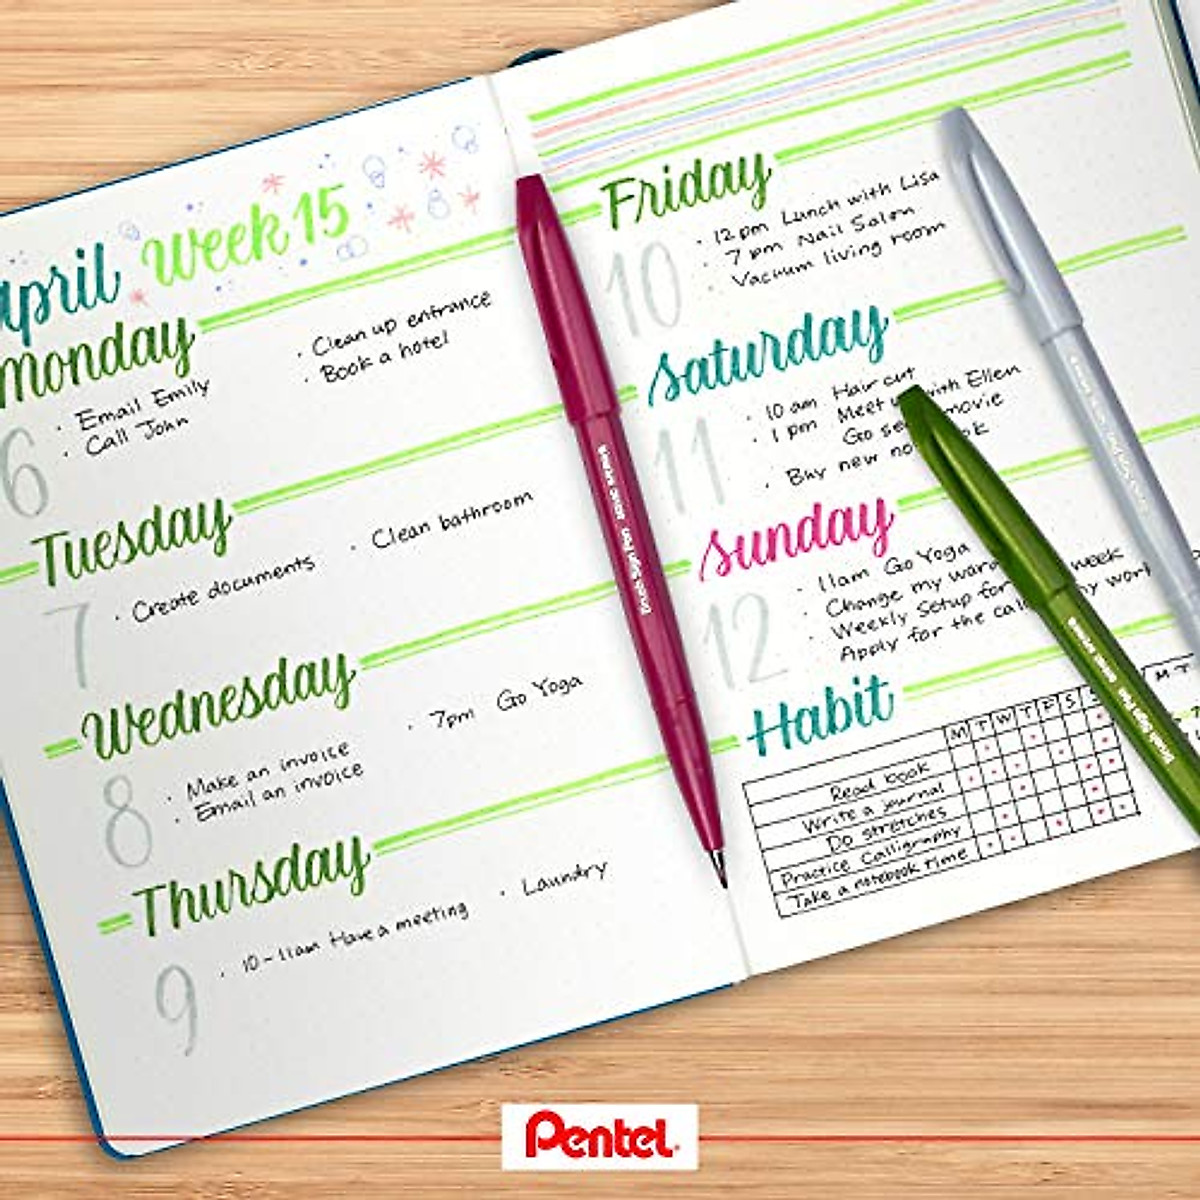 april Week 15
Monday
6
· Email Emily
· Call John
· Clean up entrance
· Book a hotel
Tuesday
7
· Create documents
· Clean bathroom
Wednesday
8
· Make an invoice
· Email an invoice
· 7pm Go Yoga
Thursday
9
· 10-11am Have a meeting
· Laundry
Friday
10
· 12pm Lunch with Lisa
· 7 pm Nail Salon
· Vacuum living room
Saturday
11
· 10 am Hair cut
· 1 pm Meet with Ellen
Go movie
· Buy new
Sunday
12
· 11am Go Yoga
· Change my week
· Weekly Setup for my
Apply for the
Habit
M T W T F S
Read book
Write a journal
Do stretches
Practice Calligraphy
Take a notebook time
M T
Brush Sign Pen
Pentel